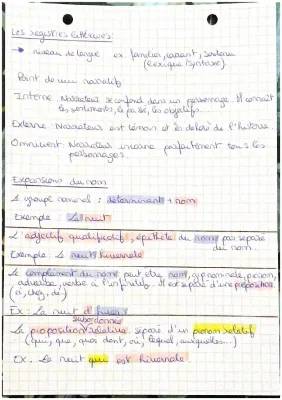 Les registres littéraires:
→ niveau de langue ex: familier, courant, soutenu
(lexique/syntaxe)
Point de vue narratif
Interne: Narrateur se confond dans un personnage. Il connait
les sentiments, le passé, les objectifs
Externe: Narrateur est témoin et en dehors de l'histoire.
Omniscient: Narrateur incarne parfaitement tous les
personnages.
Expansions du nom
Le groupe nominal : déterminant + nom
Exemple: La nuit
L'adjectif qualificatif, épithète du nom pas séparé
du nom.
Exemple: La nuit hivernale
Le complément du nom peut être nom, gp nominale, pronom,
adverbe, verbe à l'infinitif. Il est séparé d'une préposition
(à, chez, de)
Ex: La nuit d'hiver
subordonnée
La proposition relative séparé d'un pronom relatif
(qui, que, quoi, dont, où, lequel, auxquelles...)
Ex: La nuit qui est hivernale.